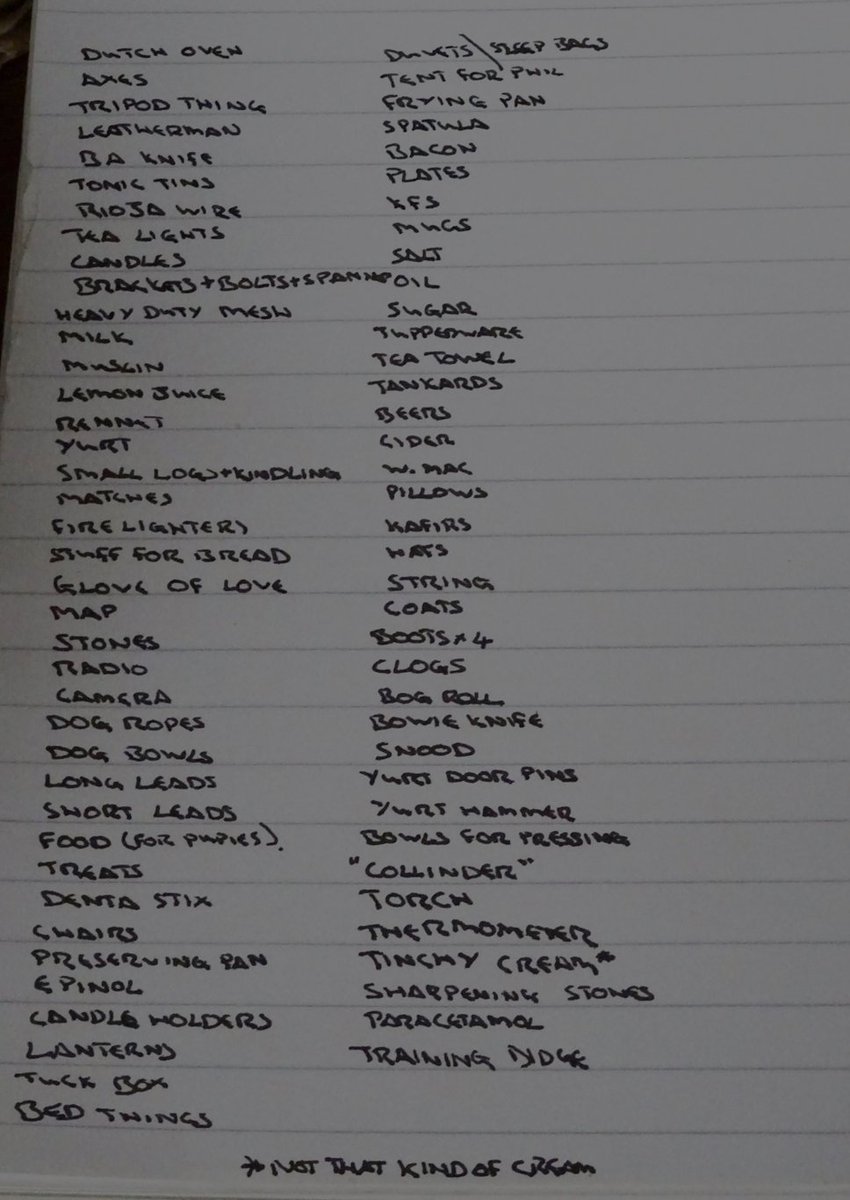 DUTCH OVEN
AXES
TRIPOD THING
LEATHERMAN
BA KNIFE
TONIC TINS
RIOJA WIRE
TEA LIGHTS
CANDLES
BRACKETS+BOLTS+SPANNER
HEAVY DUTY MESH
MILK
MUSLIN
LEMON JUICE
RENNET
YURT
SMALL LOGS+KINDLING
MATCHES
FIRE LIGHTERS
STUFF FOR BREAD
GLOVE OF LOVE
MAP
STONES
RADIO
CAMERA
DOG ROPES
DOG BOWLS
LONG LEADS
SHORT LEADS
FOOD (FOR PUPIES).
TREATS
DENTA STIX
CHAIRS
PRESERVING PAN
EPINOL
CANDLE HOLDERS
LANTERNS
TUCK BOX
BED THINGS
DUVETS\SLEEP BAGS
TENT FOR PHIL
FRYING PAN
SPATULA
BACON
PLATES
KFS
MUGS
SALT
OIL
SUGAR
TUPPERWARE
TEA TOWEL
TANKARDS
BEERS
CIDER
W. MAC
PILLOWS
KAFIRS
HATS
STRING
COATS
BOOTS x 4
CLOGS
BOG ROLL
BOWIE KNIFE
SNOOD
YURT DOOR PINS
YURT HAMMER
BOWLS FOR PRESSING
"COLLINDER"
TORCH
THERMOMETER
TINCHY CREAM*
SHARPENING STONES
PARACETAMOL
TRAINING DIDGE
* NOT THAT KIND OF CREAM